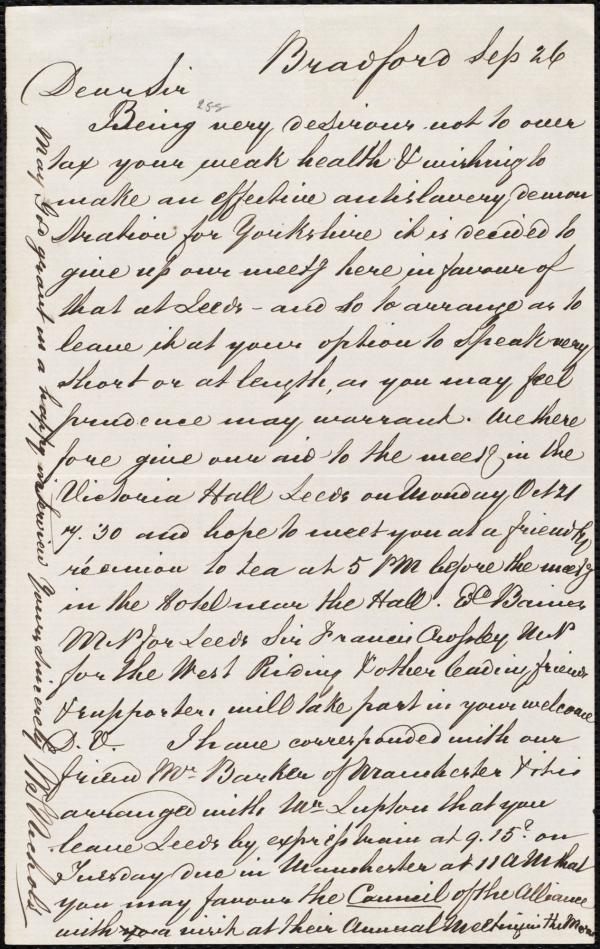 Bradford Sep 26
Dear Sir
Being very desirous not to over
tax your weak health & wishing to
make an effective antislavery demon
stration for Yorkshire it is decided to
give up our meetg here in favour of
that at Leeds - and so to arrange as to
leave it at your option to speak very
short or at length, as you may feel
prudence may warrant. We there
fore give our aid to the meetg in the
Victoria Hall Leeds on Monday Oct 21
7.30 and hope to meet you at a friendly
réunion to tea at 5 PM before the meetg
in the Hotel near the Hall. Ed Baines
M.P. for Leeds Sir Francis Crossley M.P.
for the West Riding & other leading friends
& supporters will take part in your welcome
D.V. I have corresponded with our
friend Mr Barker of Manchester & it is
arranged with Mr Lupton that you
leave Leeds by express train at 9.15 on
Tuesday due in Manchester at 11 AM that
you may favour the Council of the Alliance
with a visit at their Annual Meeting in the Morn
May God grant us a happy interview Yours sincerely W Nichols